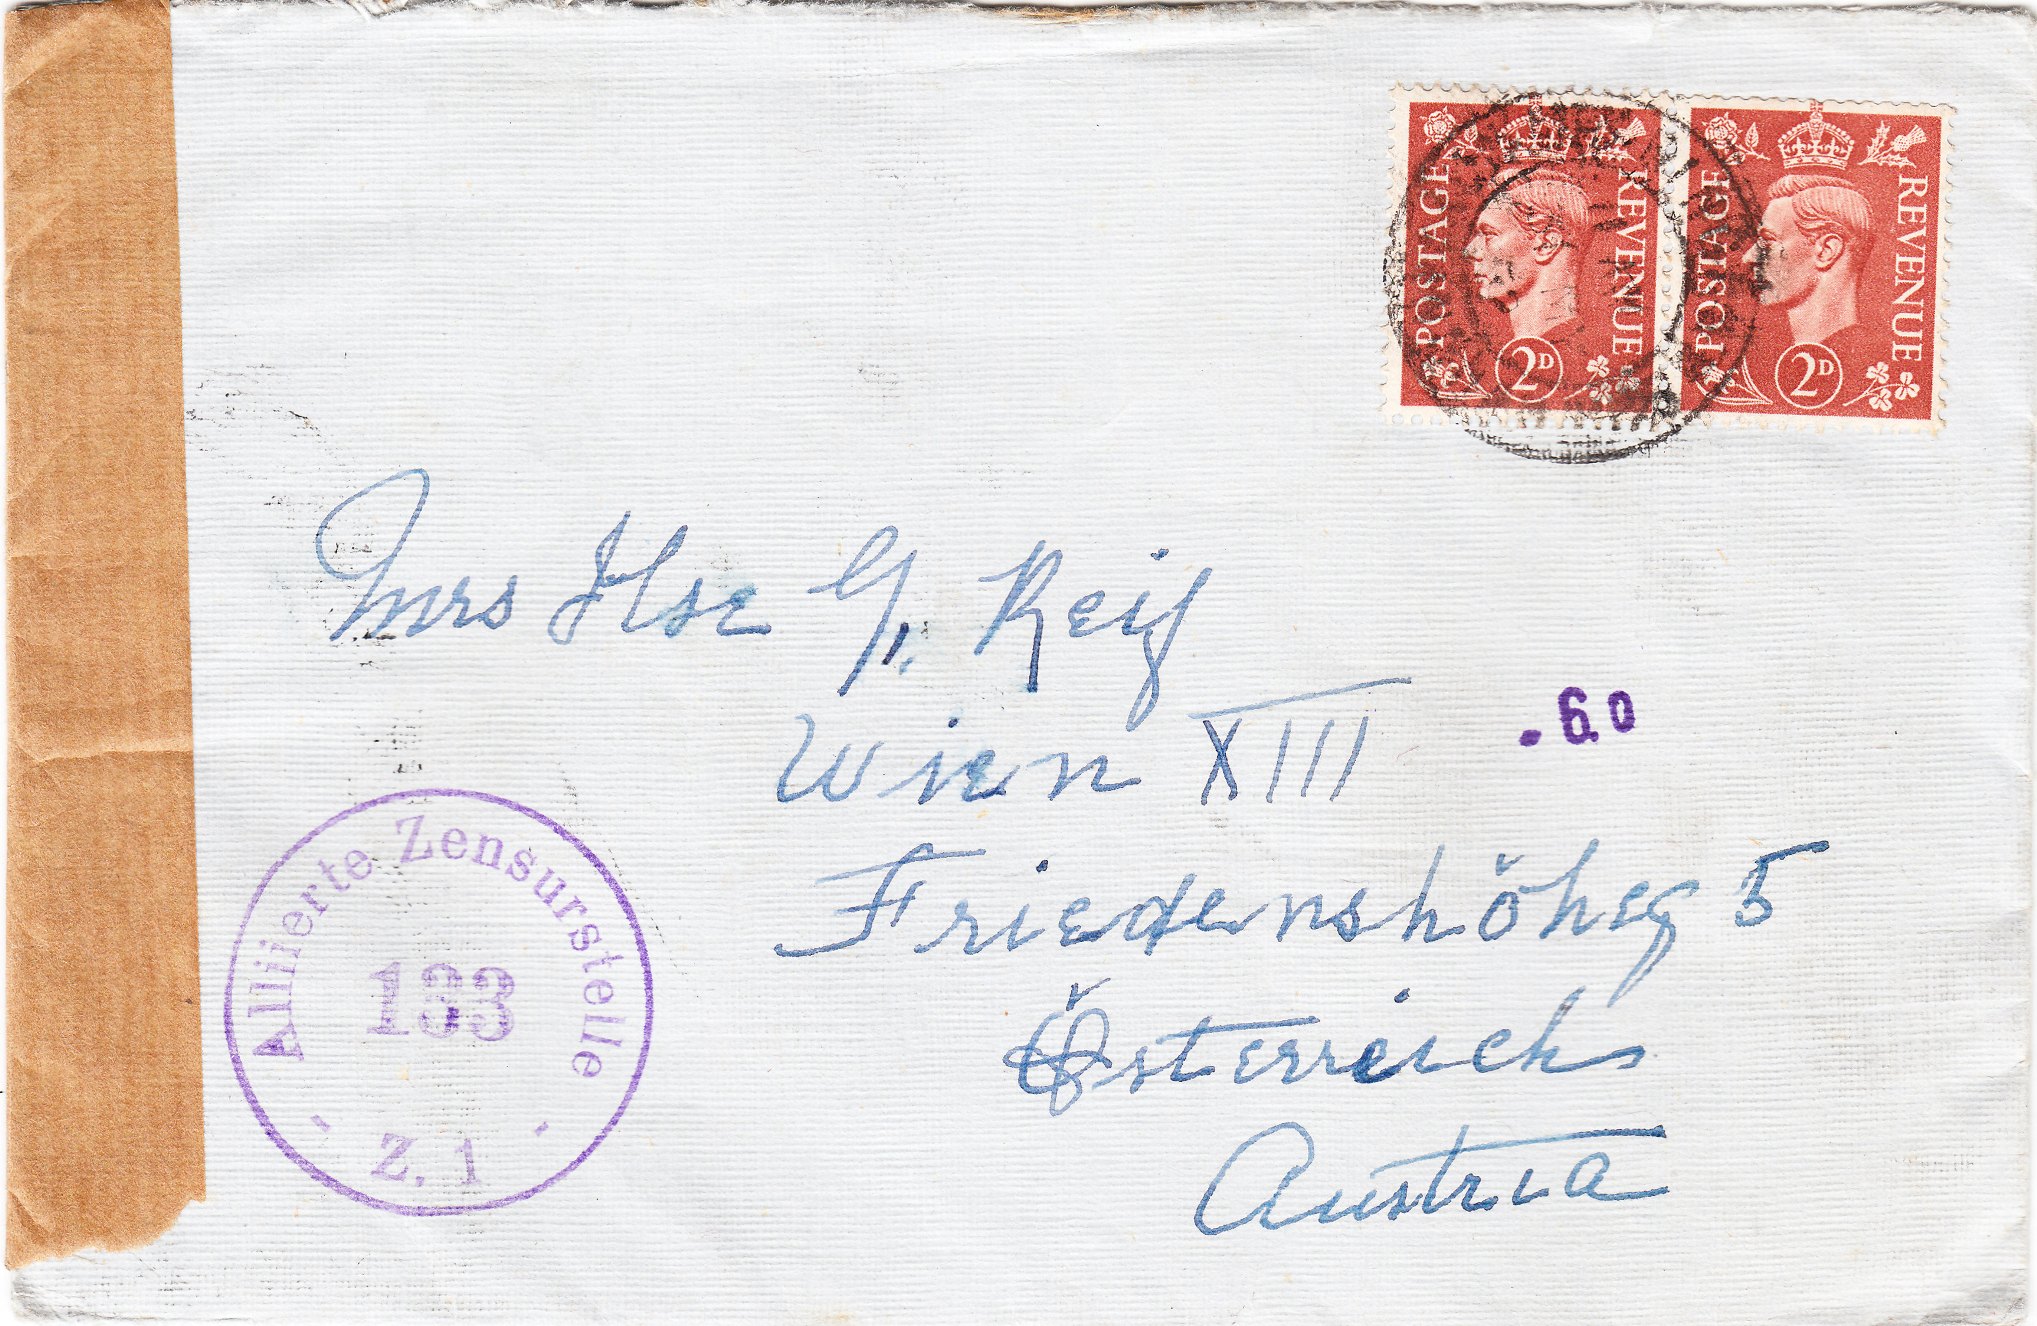 POSTAGE REVENUE
2D
POSTAGE REVENUE
2D
Mrs Ilse G. Reif
Wien XIII
.60
Friedenshöheg 5
Österreich
Austria
Alliierte Zensurstelle
133
Z. 1